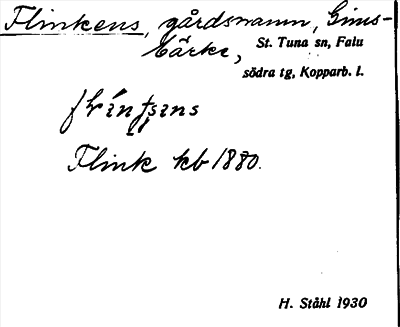 Flinkens, gårdsnamn, Gims-
bärke, St. Tuna sn, Falu
södra tg, Kopparb. l.
Flink kb 1880.
H. Ståhl 1930